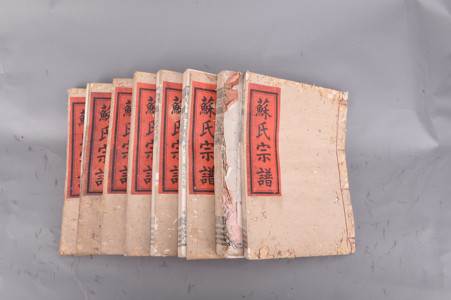 蘇氏宗譜
蘇氏宗譜
蘇氏宗譜
蘇氏宗譜
蘇氏宗譜
蘇氏宗譜